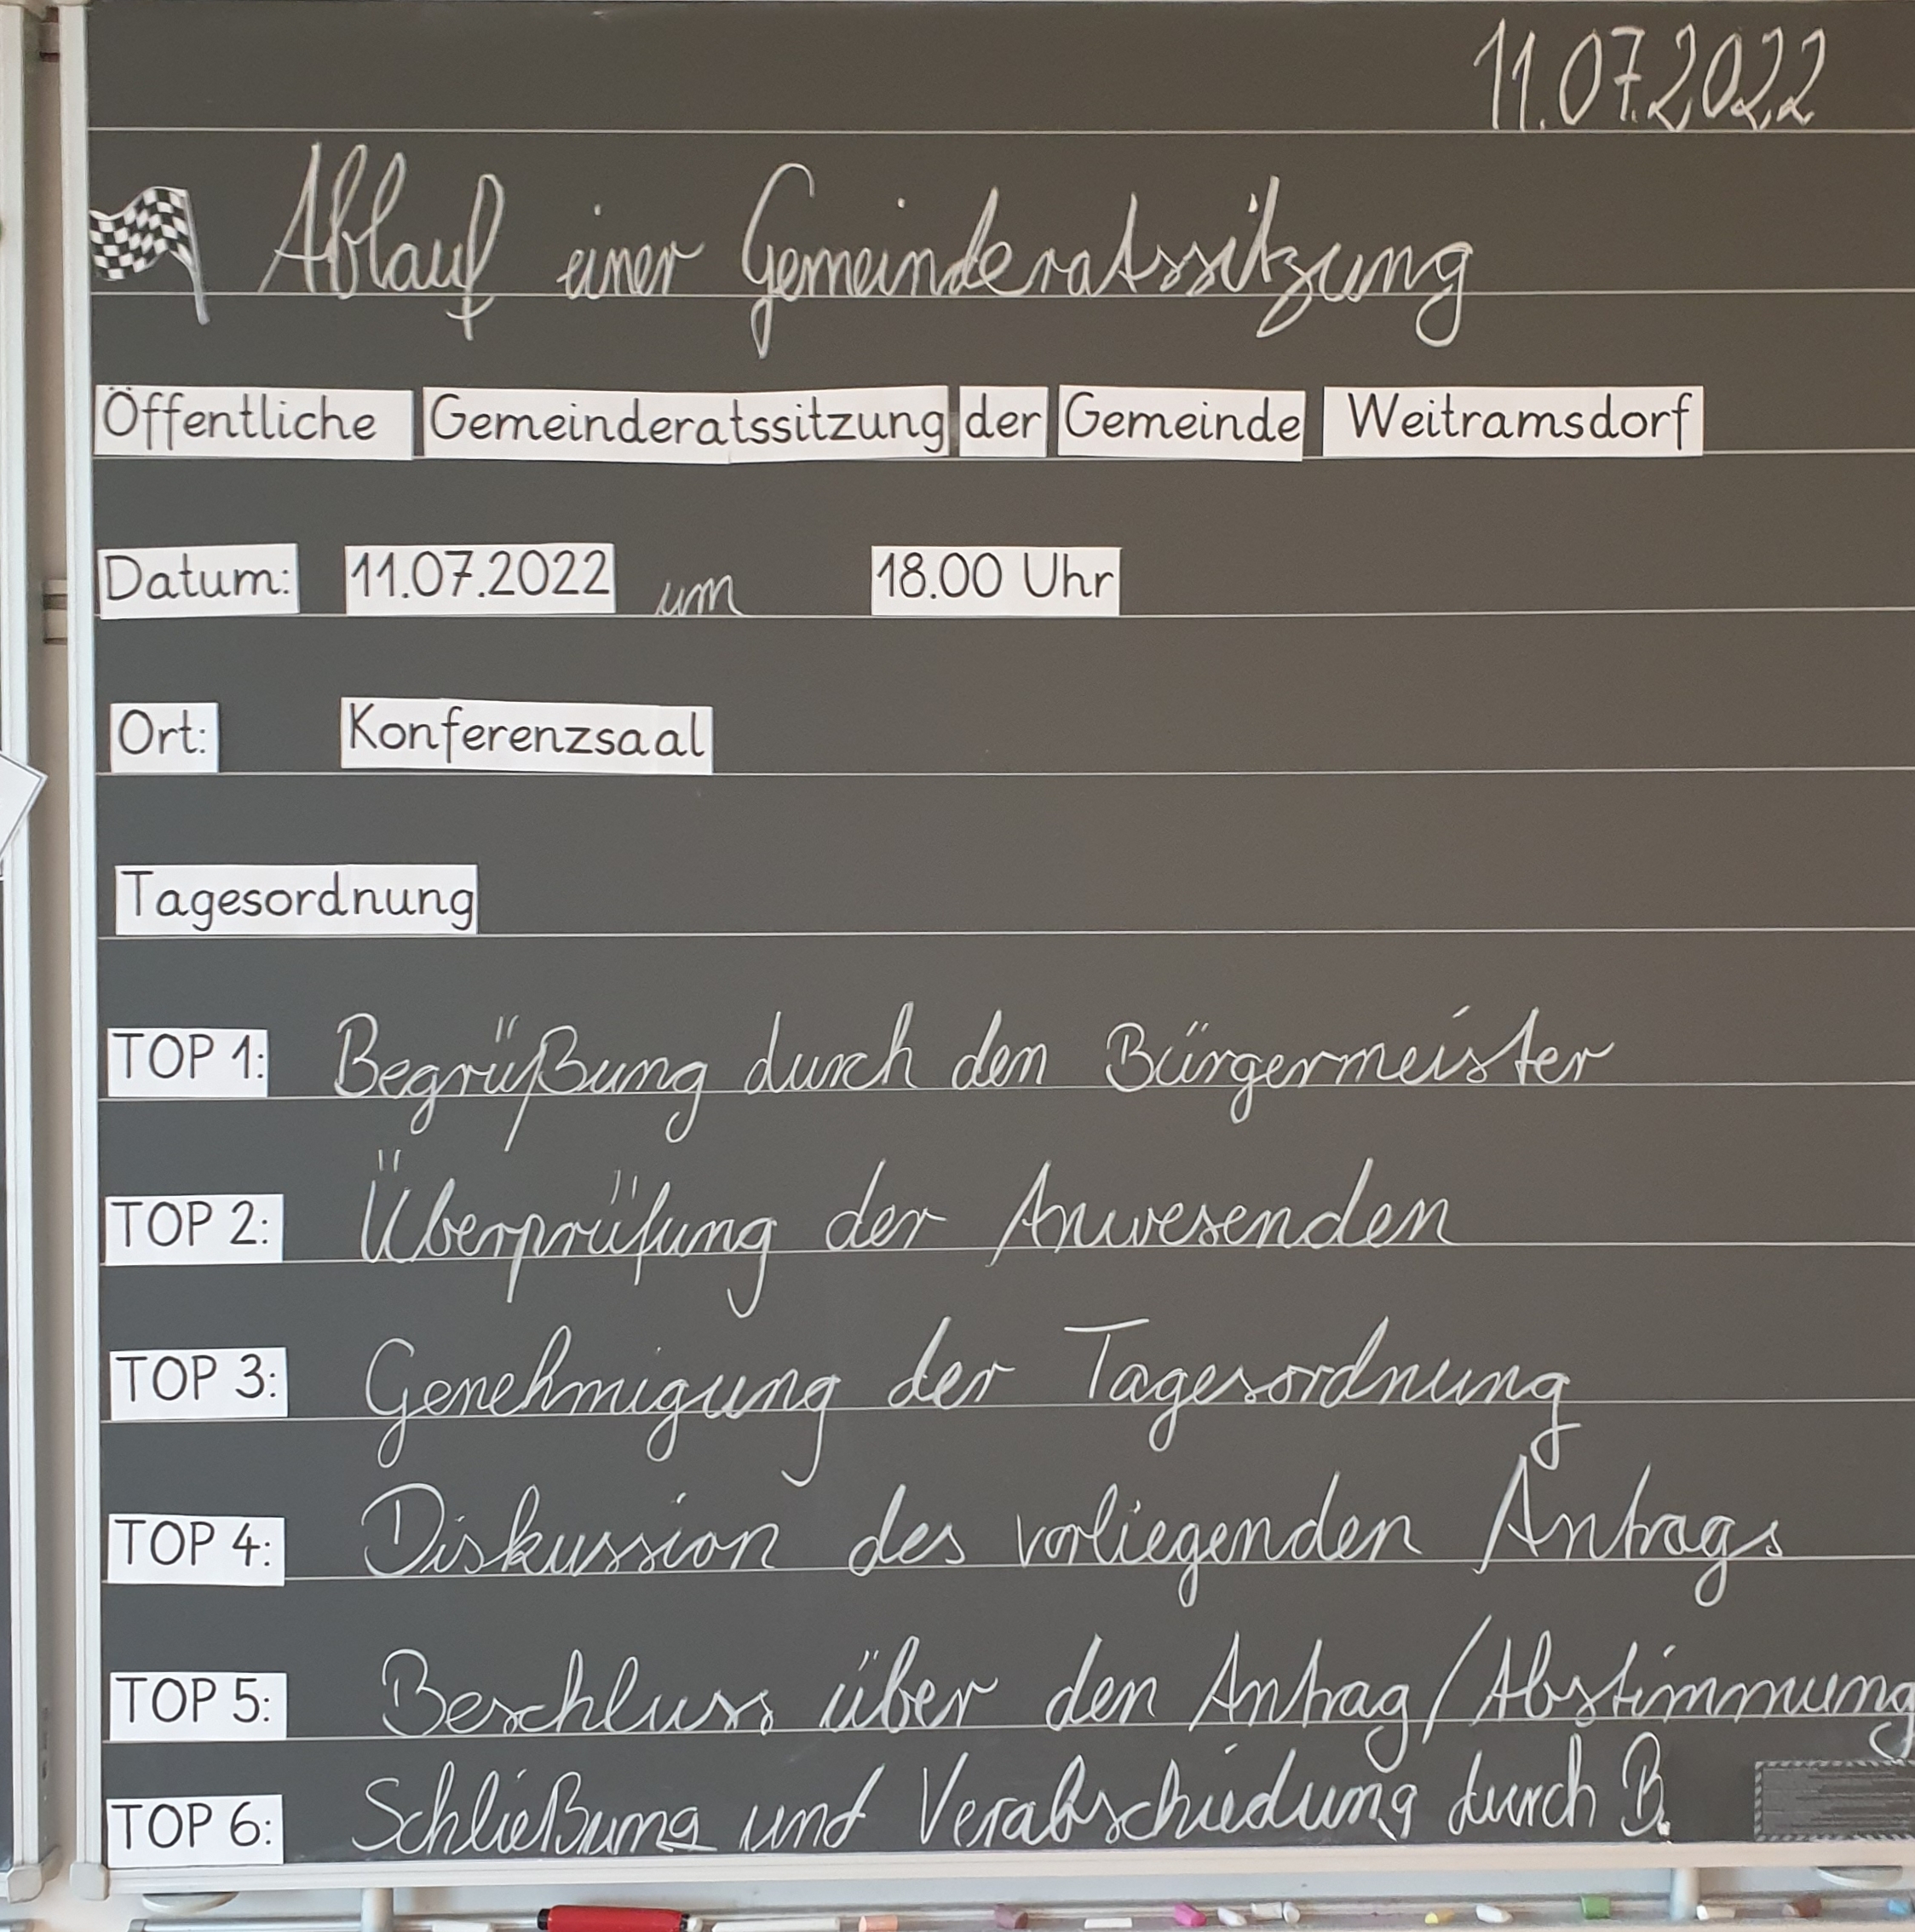 11.07.2022
Ablauf einer Gemeinderatssitzung
Öffentliche Gemeinderatssitzung der Gemeinde Weitramsdorf
Datum: 11.07.2022 um 18.00 Uhr
Ort: Konferenzsaal
Tagesordnung
TOP 1: Begrüßung durch den Bürgermeister
TOP 2: Überprüfung der Anwesenden
TOP 3: Genehmigung der Tagesordnung
TOP 4: Diskussion des vorliegenden Antrags
TOP 5: Beschluss über den Antrag / Abstimmung
TOP 6: Schließung und Verabschiedung durch B.